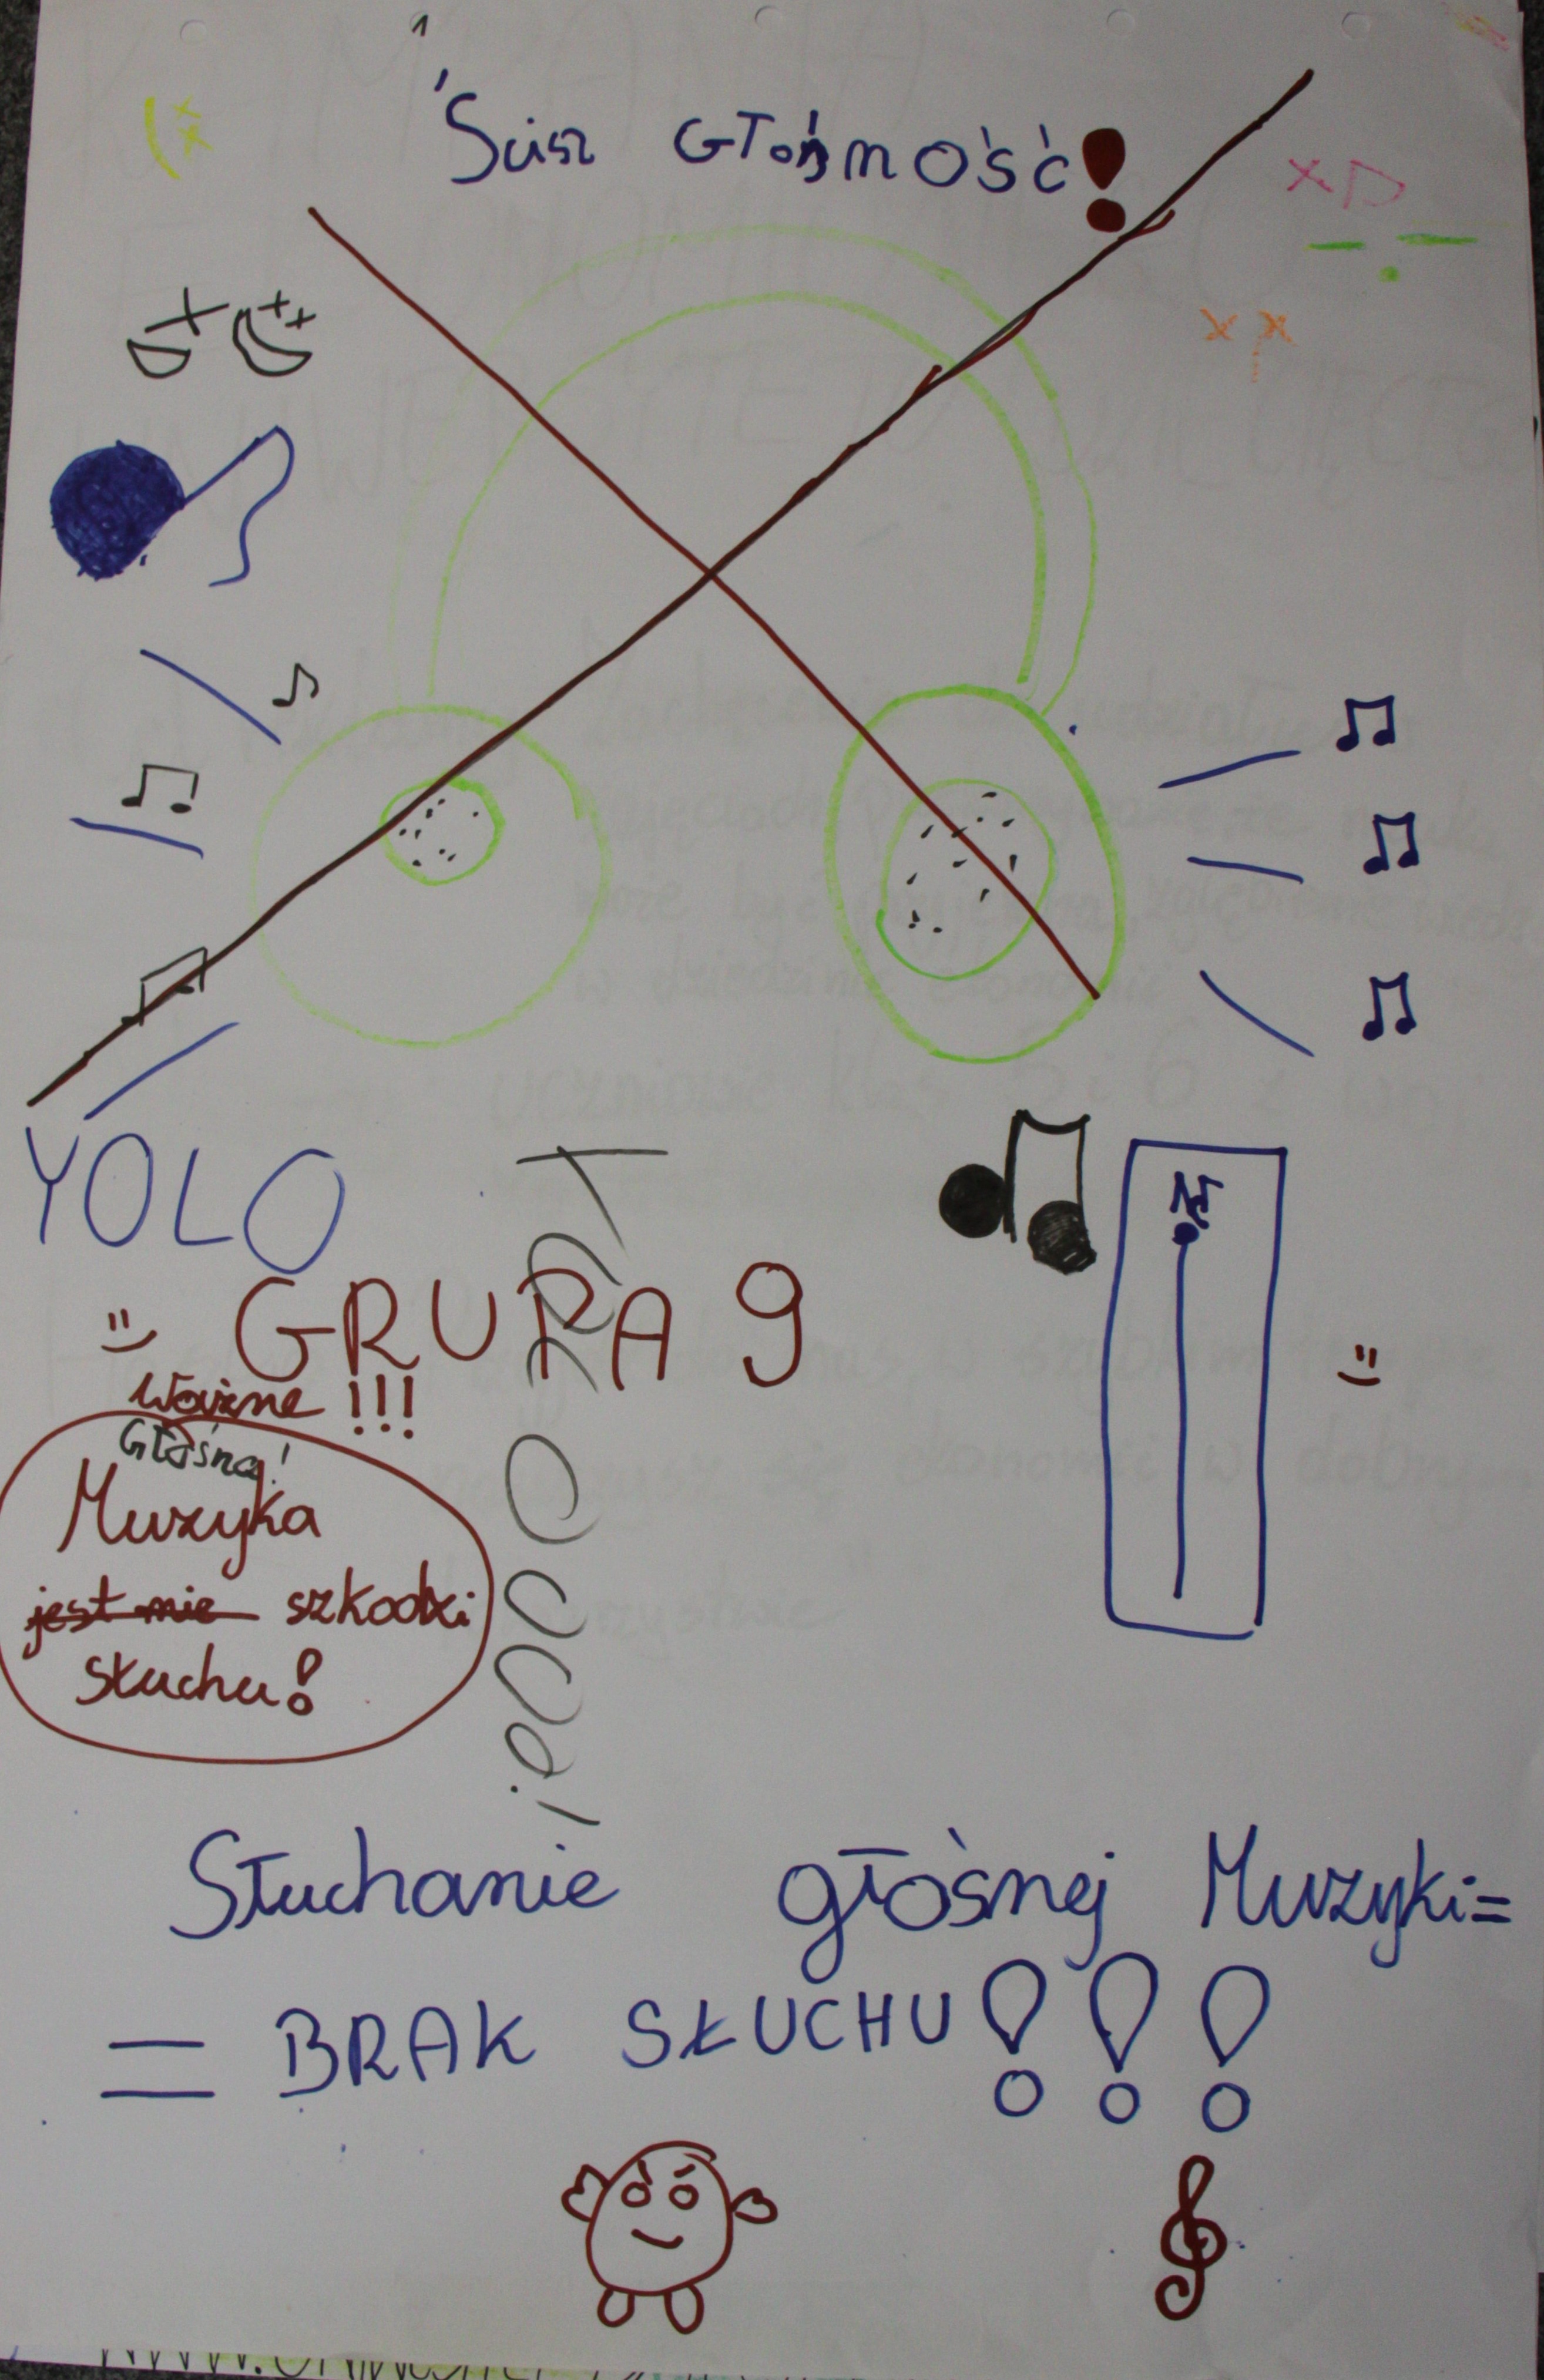 Ścisz GŁośność!
xD
-.-
YOLO
GRUPA 9
Ważne !!!
Głośna!
Muzyka
jest nie szkodzi
słuchu!
Słuchanie głośnej Muzyki=
= BRAK SŁUCHU!!!